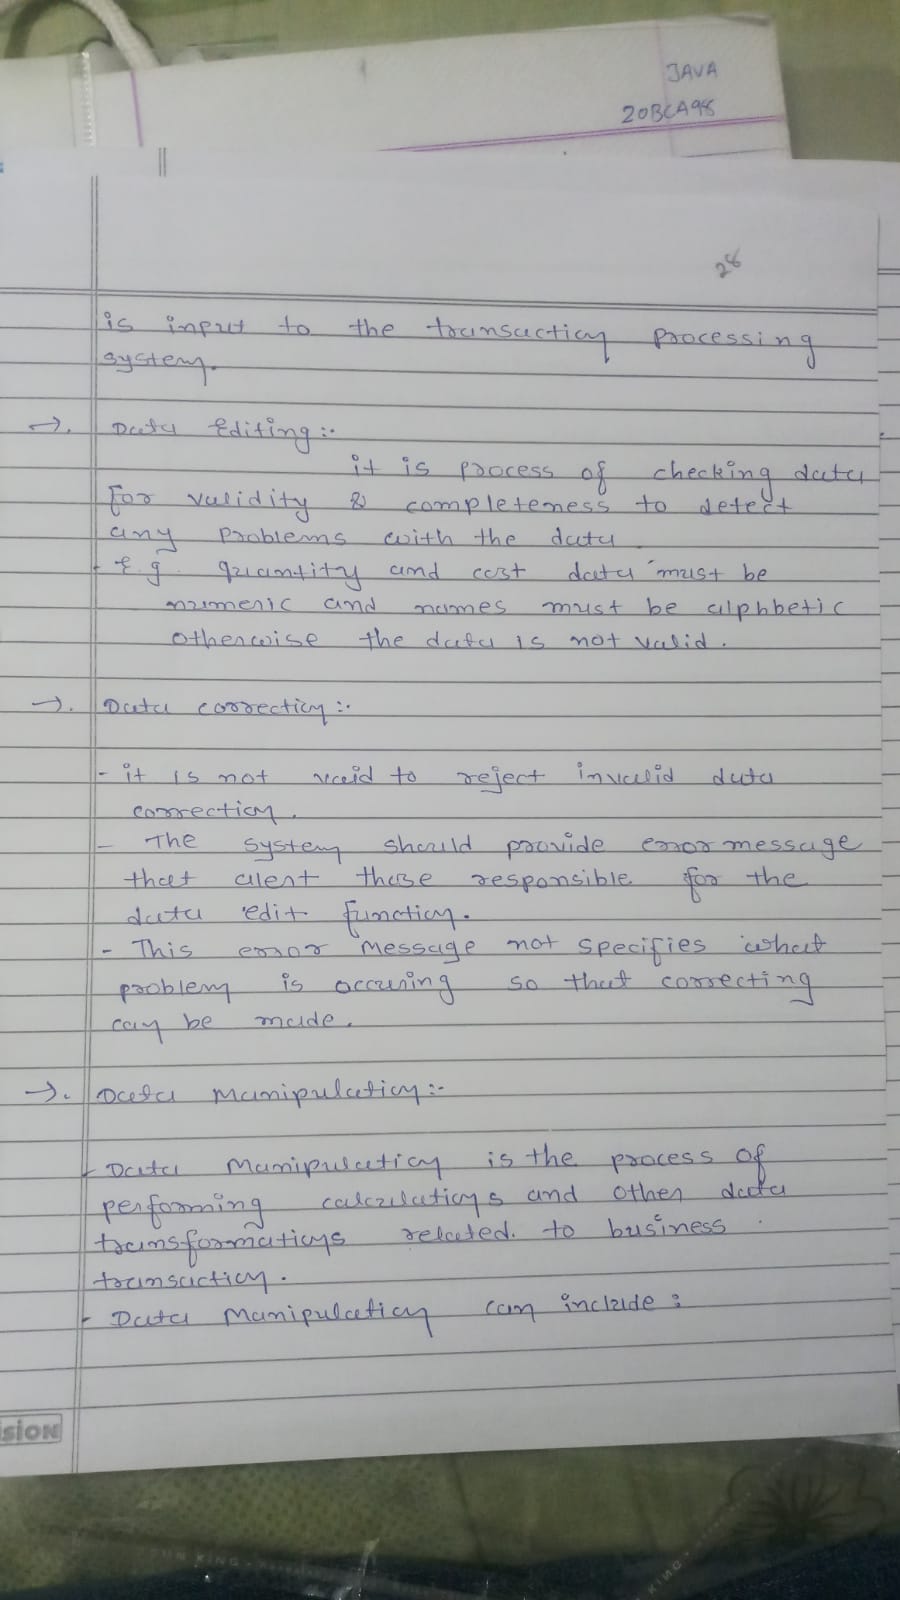 JAVA
20BCA98
28
is input to the transaction processing
system.
→. Data Editing :-
it is process of checking data
for validity & completeness to detect
any problems with the data
- E.g. quantity and cost data must be
numeric and names must be alphbetic
otherwise the data is not valid.
→. Data correction :-
- it is not vaid to reject invalid data
correction.
- The system should provide error message
that alert those responsible for the
data edit function.
- This error message not specifies what
problem is occuring so that correcting
can be made.
→. Data manipulation :-
- Data manipulation is the process of
performing calculations and other data
transformations related. to business
transaction.
- Data manipulation can include :
sion